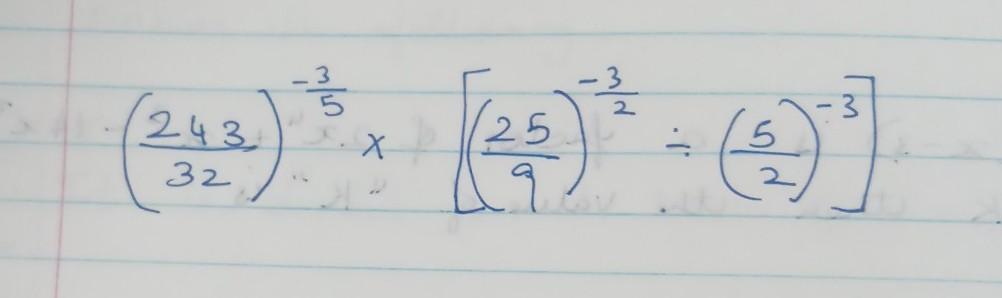 (243/32)^(-3/5) × [(25/9)^(-3/2) ÷ (5/2)^(-3)]